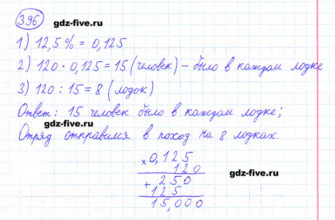 396 gdz-five.ru
1) 12,5 % = 0,125
2) 120 · 0,125 = 15 (человек) - было в каждом лодке
3) 120 : 15 = 8 (лодок) gdz-five.ru
Ответ: 15 человек было в каждом лодке;
gdz-five.ru
Отряд отправился в поход на 8 лодках.
× 0,125
120
gdz-five.ru + 250
125
15,000